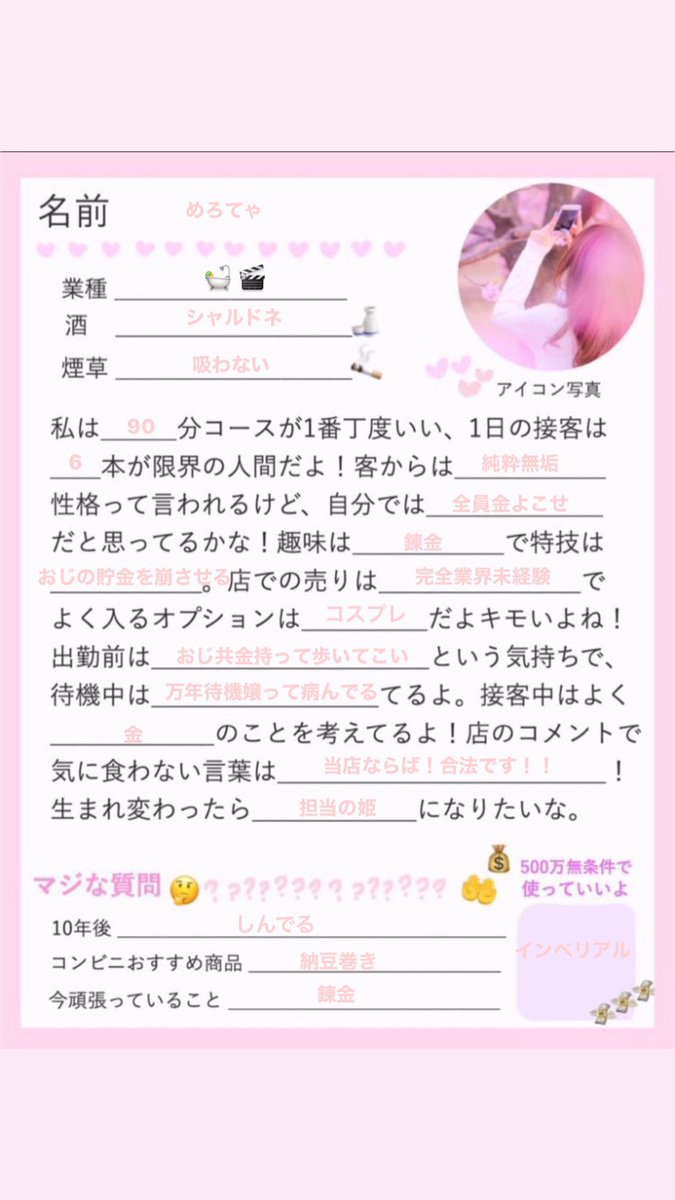 名前 めろてゃ
業種 🛀🎬
酒 シャルドネ
煙草 吸わない
アイコン写真
私は90分コースが1番丁度いい、1日の接客は
6本が限界の人間だよ！客からは純粋無垢
性格って言われるけど、自分では全員金よこせ
だと思ってるかな！趣味は錬金で特技は
おじの貯金を崩させる。店での売りは完全業界未経験で
よく入るオプションはコスプレだよキモいよね！
出勤前はおじ共金持って歩いてこいという気持ちで、
待機中は万年待機嬢って病んでるてるよ。接客中はよく
金のことを考えてるよ！店のコメントで
気に食わない言葉は当店ならば！合法です！！！
生まれ変わったら担当の姫になりたいな。
マジな質問🤔？？？？？？？？？？？？？？
500万無条件で
使っていいよ
インペリアル
10年後 しんでる
コンビニおすすめ商品 納豆巻き
今頑張っていること 錬金